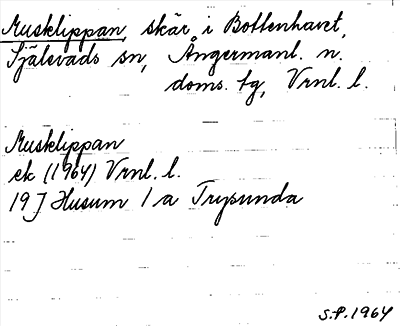 Musklippan, skär i Bottenhavet,
Själevads sn, Ångermanl. n.
doms. tg, Vrnl. l.
Musklippan
ek (1964) Vrnl. l.
19 J Husum 1 a Trysunda
S.P. 1964